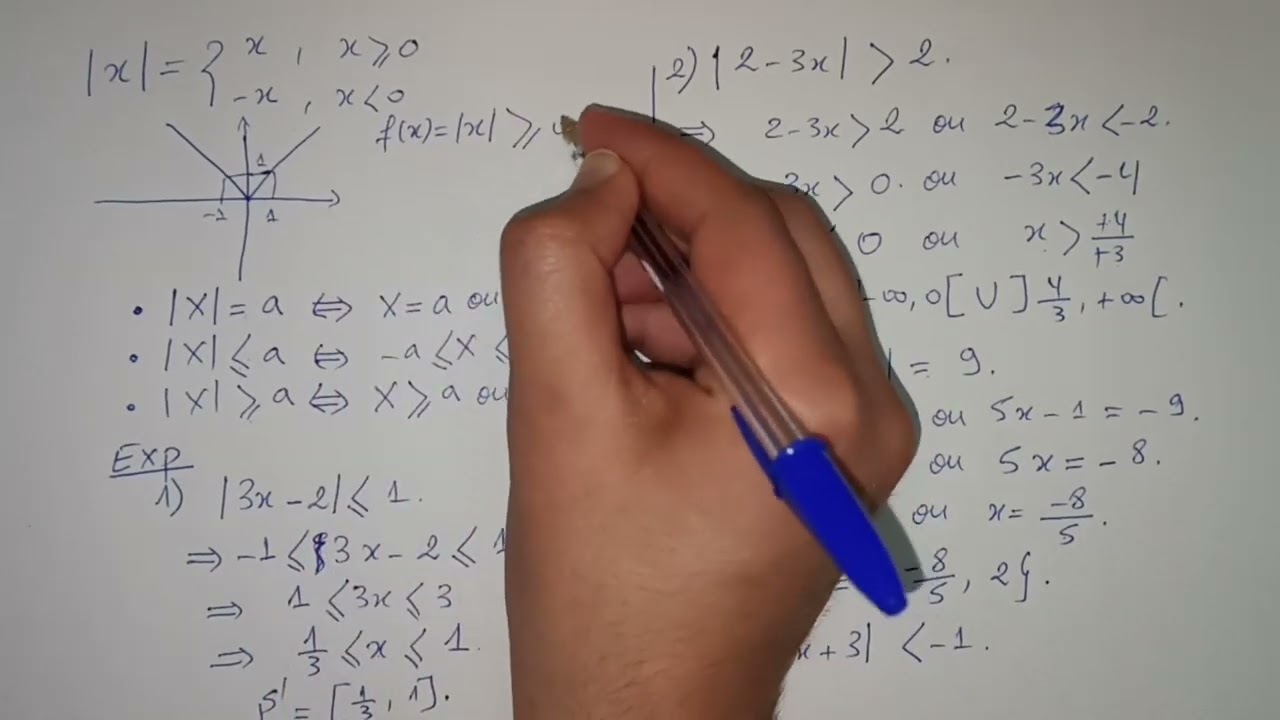 |x| = { x , x ⩾ 0
-x , x < 0
f(x) = |x| ⩾
1
-1 1
• |X| = a ⇔ X = a ou
• |X| ⩽ a ⇔ -a ⩽ X ⩽
• |X| ⩾ a ⇔ X ⩾ a ou
Exp
1) |3x - 2| ⩽ 1.
⇒ -1 ⩽ 3x - 2 ⩽ 1
⇒ 1 ⩽ 3x ⩽ 3
⇒ 1/3 ⩽ x ⩽ 1.
S = [1/3, 1].
2) |2 - 3x| > 2.
⇒ 2 - 3x > 2 ou 2 - 3x < -2.
3x > 0. ou -3x < -4
0 ou x > +4/+3
-∞, 0[ ∪ ]4/3, +∞[.
| = 9.
ou 5x - 1 = -9.
ou 5x = -8.
ou x = -8/5.
= -8/5, 2}.
x + 3| < -1.